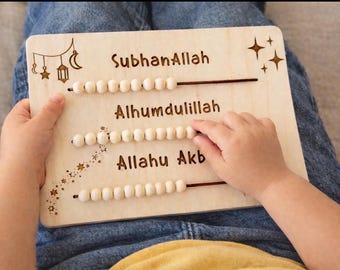 SubhanAllah
Alhumdulillah
Allahu Akb